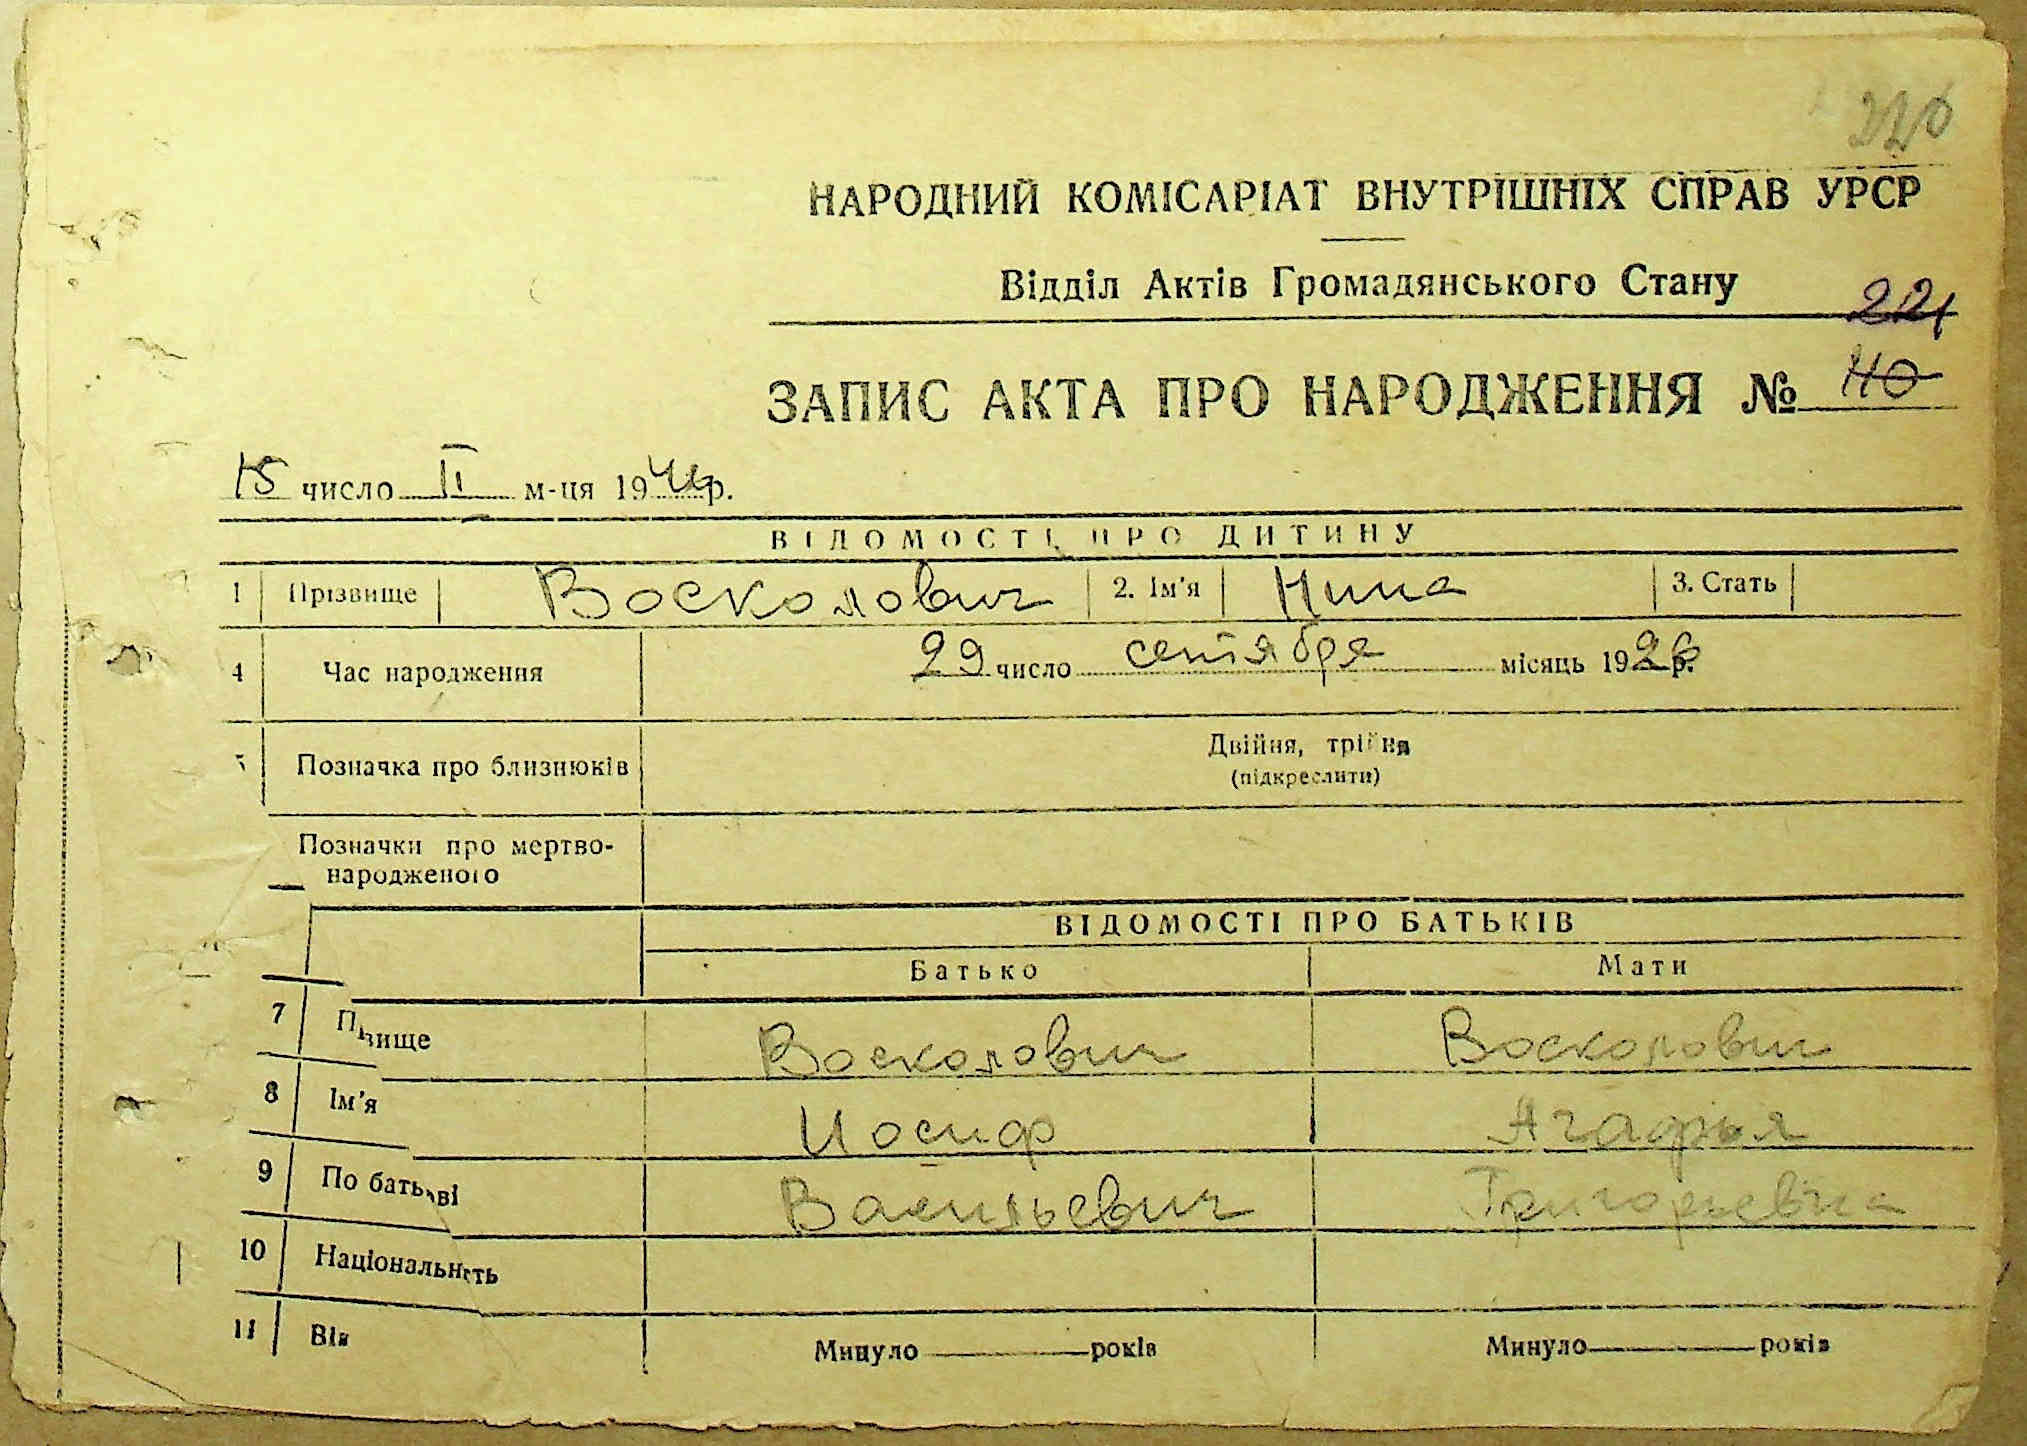 220
НАРОДНИЙ КОМІСАРІАТ ВНУТРІШНІХ СПРАВ УРСР
Відділ Актів Громадянського Стану
221
ЗАПИС АКТА ПРО НАРОДЖЕННЯ № 110
15 число II м-ця 1941р.
ВІДОМОСТІ ПРО ДИТИНУ
1 Прізвище Восколович 2. Ім'я Нина 3. Стать
4 Час народження 29 число сентября місяць 1926р.
5 Позначка про близнюків Двійня, трійня
(підкреслити)
Позначки про мертво-
народженого
ВІДОМОСТІ ПРО БАТЬКІВ
Батько Мати
7 П звище Восколович Восколович
8 Ім'я Иосиф Агафья
9 По батькові Васильевич Григорьевна
10 Національність
11 Вік Минуло років Минуло років